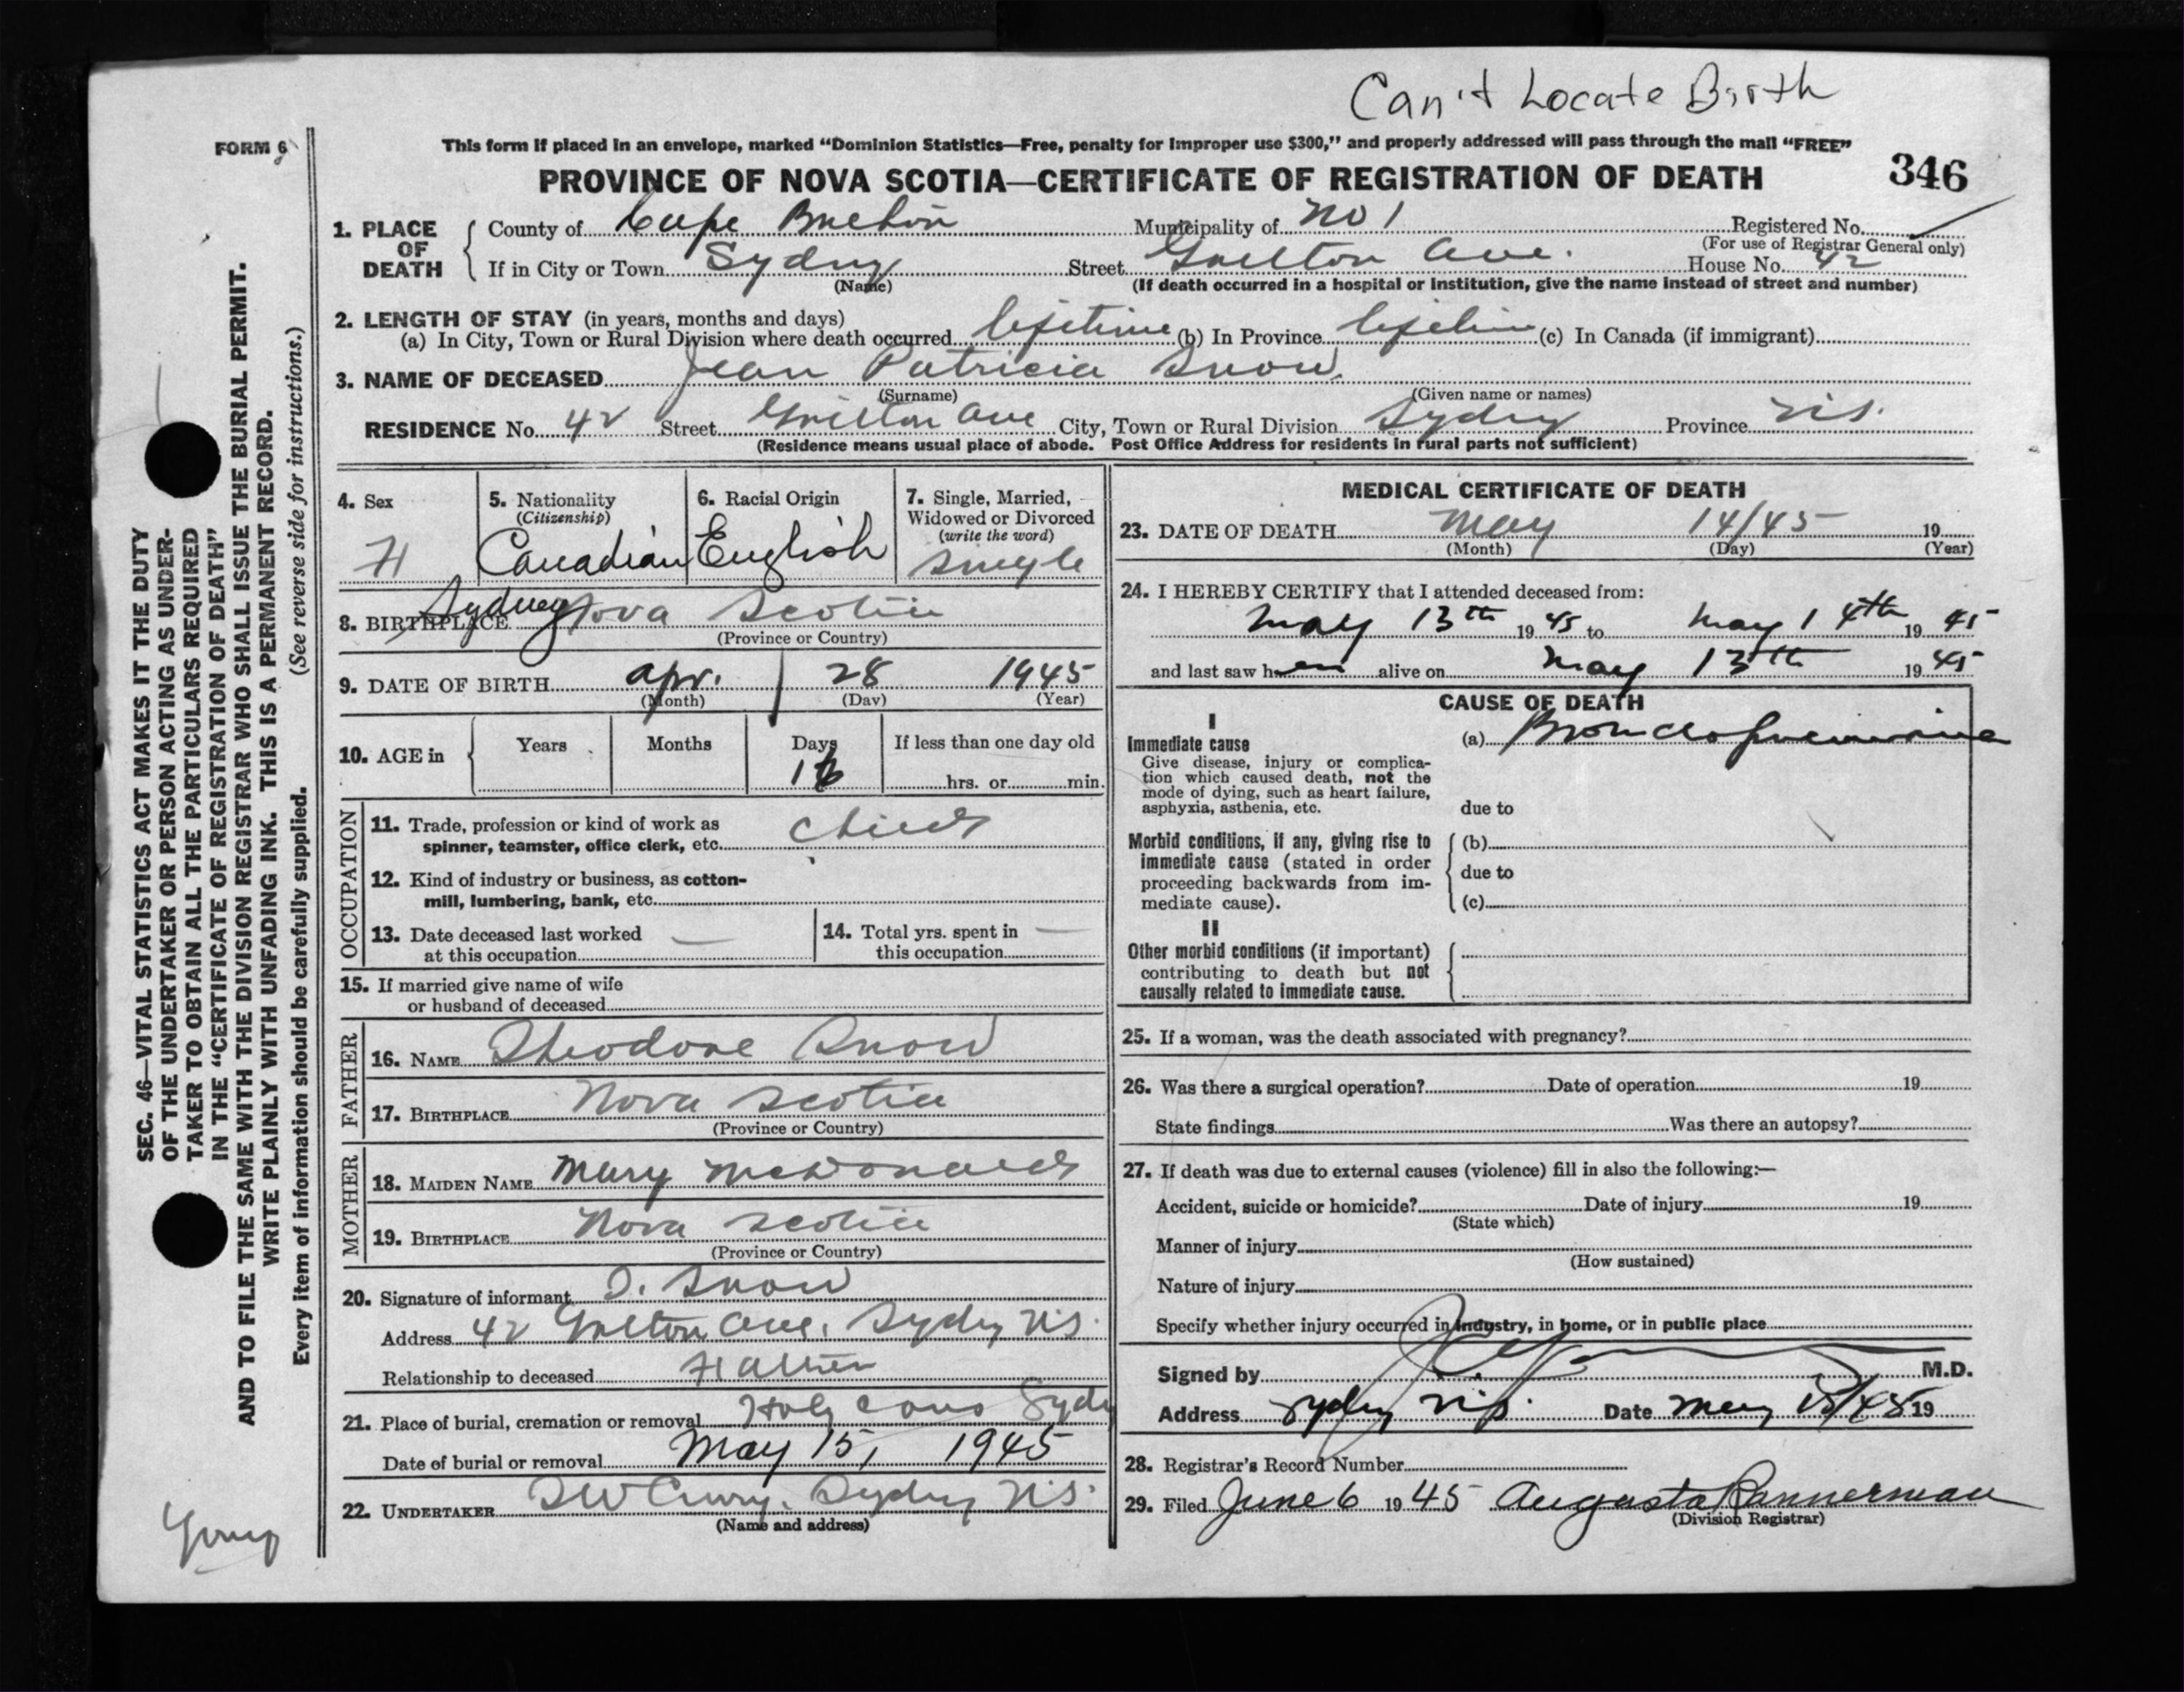 Can't Locate Birth
FORM 6
This form if placed in an envelope, marked "Dominion Statistics—Free, penalty for improper use $300," and properly addressed will pass through the mail "FREE"
PROVINCE OF NOVA SCOTIA—CERTIFICATE OF REGISTRATION OF DEATH
346
1. PLACE OF DEATH
County of Cape Breton Municipality of No 1 Registered No.
(For use of Registrar General only)
If in City or Town Sydney Street Ave. House No. 42
(Name) (If death occurred in a hospital or institution, give the name instead of street and number)
2. LENGTH OF STAY (in years, months and days)
(a) In City, Town or Rural Division where death occurred lifetime (b) In Province lifetime (c) In Canada (if immigrant)
3. NAME OF DECEASED Jean Patricia Snow
(Surname) (Given name or names)
RESIDENCE No. 42 Street Ave City, Town or Rural Division Sydney Province N.S.
(Residence means usual place of abode. Post Office Address for residents in rural parts not sufficient)
4. Sex F
5. Nationality (Citizenship) Canadian
6. Racial Origin English
7. Single, Married, Widowed or Divorced (write the word) Single
8. BIRTHPLACE Sydney Nova Scotia
(Province or Country)
9. DATE OF BIRTH Apr. 28 1945
(Month) (Day) (Year)
10. AGE in Years Months Days If less than one day old
16 hrs. or min.
OCCUPATION
11. Trade, profession or kind of work as spinner, teamster, office clerk, etc. Child
12. Kind of industry or business, as cotton-mill, lumbering, bank, etc.
13. Date deceased last worked at this occupation —
14. Total yrs. spent in this occupation —
15. If married give name of wife or husband of deceased
FATHER
16. NAME Theodore Snow
17. BIRTHPLACE Nova Scotia
(Province or Country)
MOTHER
18. MAIDEN NAME Mary McDonald
19. BIRTHPLACE Nova Scotia
(Province or Country)
20. Signature of informant T. Snow
Address 42 Ave. Sydney N.S.
Relationship to deceased Father
21. Place of burial, cremation or removal Holy Cross Sydney
Date of burial or removal May 15, 1945
22. UNDERTAKER Sydney N.S.
(Name and address)
MEDICAL CERTIFICATE OF DEATH
23. DATE OF DEATH May 14/45 19
(Month) (Day) (Year)
24. I HEREBY CERTIFY that I attended deceased from:
May 13th 19 45 to May 14th 19 45
and last saw her alive on May 13th 19 45
CAUSE OF DEATH
I
Immediate cause
Give disease, injury or complication which caused death, not the mode of dying, such as heart failure, asphyxia, asthenia, etc.
(a) Bronchopneumonia
due to
Morbid conditions, if any, giving rise to immediate cause (stated in order proceeding backwards from immediate cause).
(b)
due to
(c)
II
Other morbid conditions (if important) contributing to death but not causally related to immediate cause.
25. If a woman, was the death associated with pregnancy?
26. Was there a surgical operation? Date of operation 19
State findings Was there an autopsy?
27. If death was due to external causes (violence) fill in also the following:—
Accident, suicide or homicide? Date of injury 19
(State which)
Manner of injury
(How sustained)
Nature of injury
Specify whether injury occurred in industry, in home, or in public place
Signed by M.D.
Address Sydney N.S. Date May 15/45 19
28. Registrar's Record Number
29. Filed June 6 1945 Augusta Bannerman
(Division Registrar)
SEC. 46—VITAL STATISTICS ACT MAKES IT THE DUTY
OF THE UNDERTAKER OR PERSON ACTING AS UNDER-
TAKER TO OBTAIN ALL THE PARTICULARS REQUIRED
IN THE "CERTIFICATE OF REGISTRATION OF DEATH"
AND TO FILE THE SAME WITH THE DIVISION REGISTRAR WHO SHALL ISSUE THE BURIAL PERMIT.
WRITE PLAINLY WITH UNFADING INK. THIS IS A PERMANENT RECORD.
Every item of information should be carefully supplied. (See reverse side for instructions.)